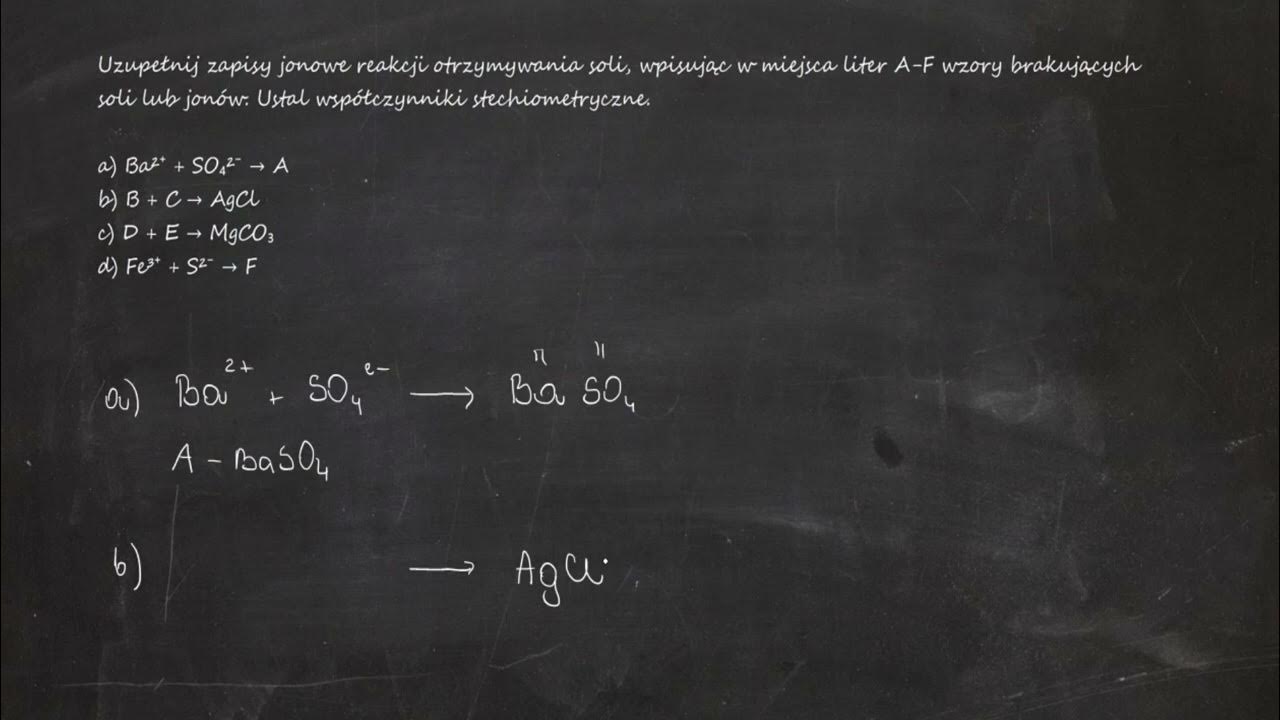 Uzupełnij zapisy jonowe reakcji otrzymywania soli, wpisując w miejsca liter A-F wzory brakujących
soli lub jonów. Ustal współczynniki stechiometryczne.
a) Ba²⁺ + SO₄²⁻ → A
b) B + C → AgCl
c) D + E → MgCO₃
d) Fe³⁺ + S²⁻ → F
a) Ba²⁺ + SO₄²⁻ → Ba^II SO₄^II
A - BaSO₄
b) → AgCl